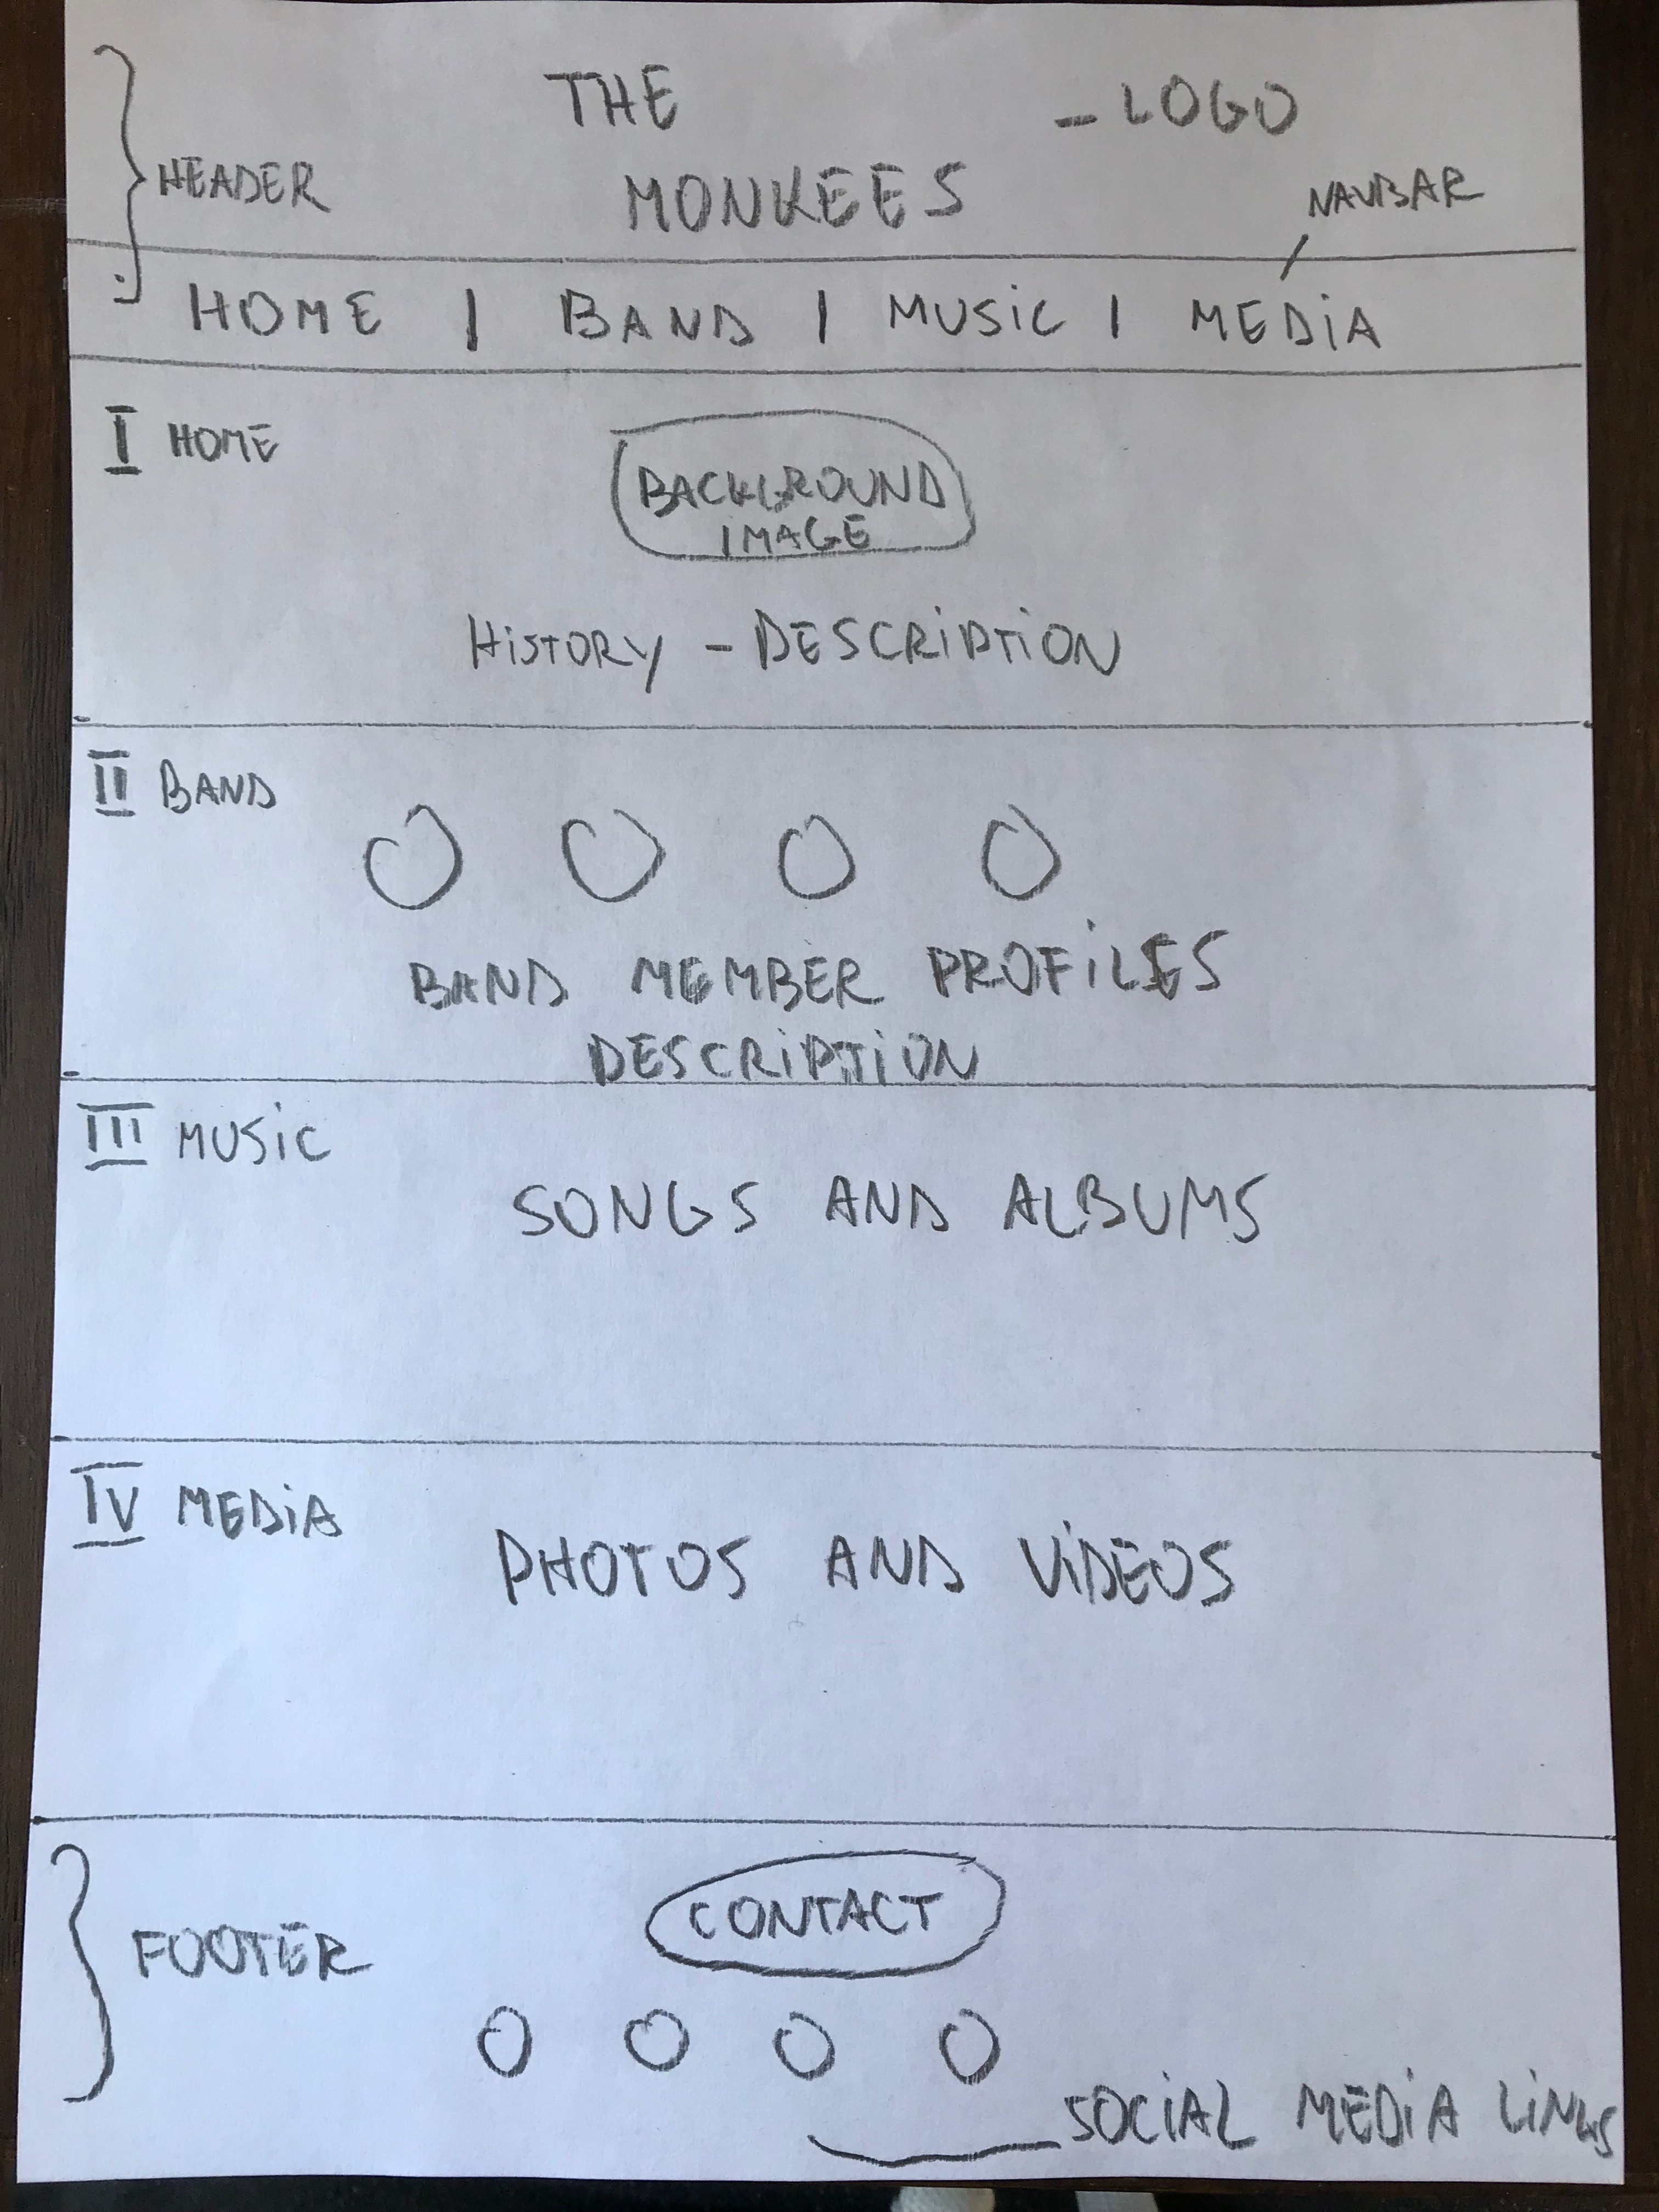 THE
– LOGO
HEADER
MONKEES
NAVBAR
HOME | BAND | MUSiC | MEDiA
I HOME
BACKGROUND
IMAGE
HiSTORY – DESCRiPTiON
II BAND
BAND MEMBER PROFiLES
DESCRiPTiON
III MUSiC
SONGS AND ALBUMS
IV MEDiA
PHOTOS AND ViDEOS
CONTACT
FOOTER
SOCiAL MEDiA LiNKS